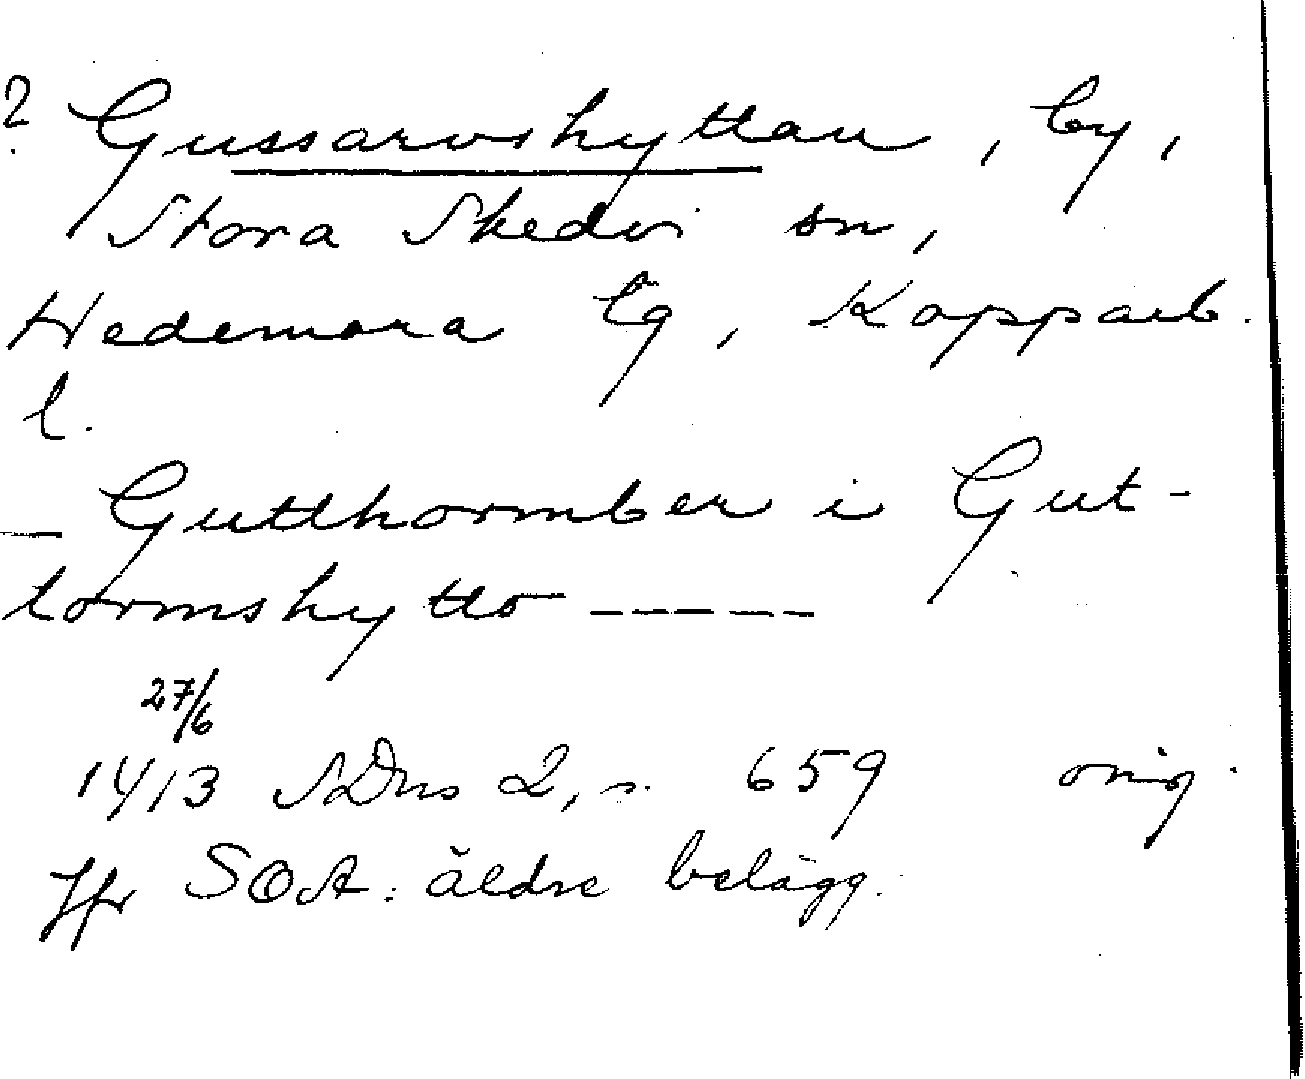 ? Gussarvshyttan, by,
Stora Skedvi sn,
Hedemora tg, Kopparb.
l.
_ Gutthormber i Gut-
tormshytto -----
27/6
1413 SDns 2, s. 659 orig.
Jfr SOA: äldre belägg.